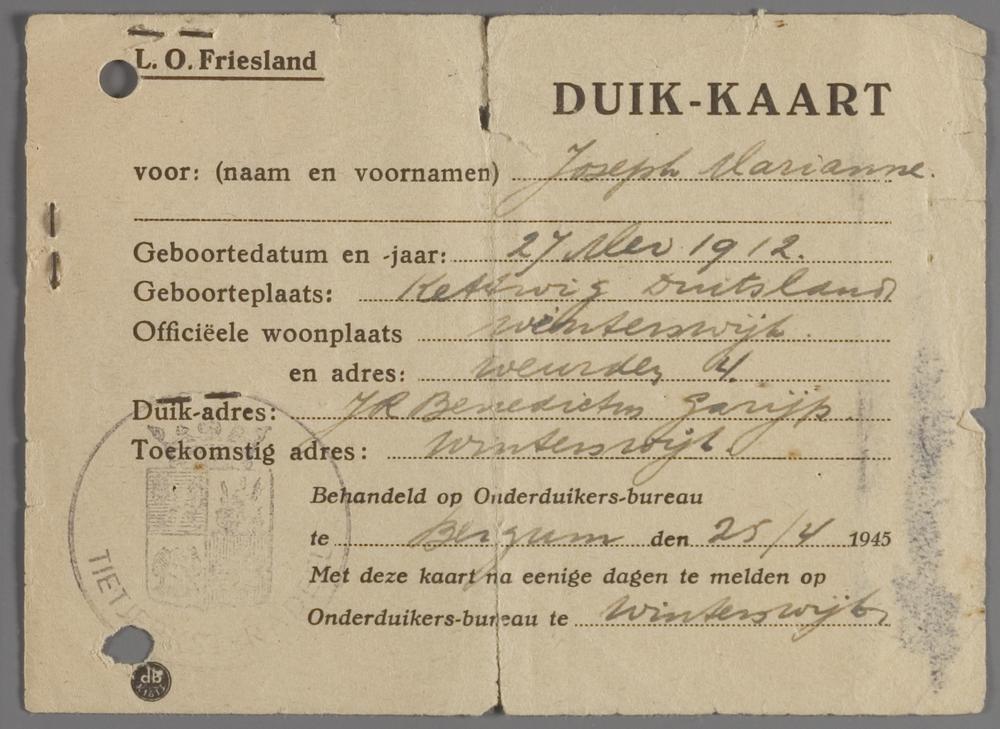 L. O. Friesland
DUIK-KAART
voor: (naam en voornamen) Joseph Marianne.
Geboortedatum en -jaar: 27 Mei 1912.
Geboorteplaats: Kettwig Duitsland
Officiëele woonplaats Winterswijk.
en adres: Weurden 4.
Duik-adres: JR Benedictus Garijp.
Toekomstig adres: Winterswijk.
Behandeld op Onderduikers-bureau
te Bergum den 25/4 1945
Met deze kaart na eenige dagen te melden op
Onderduikers-bureau te Winterswijk
TIETJ
db